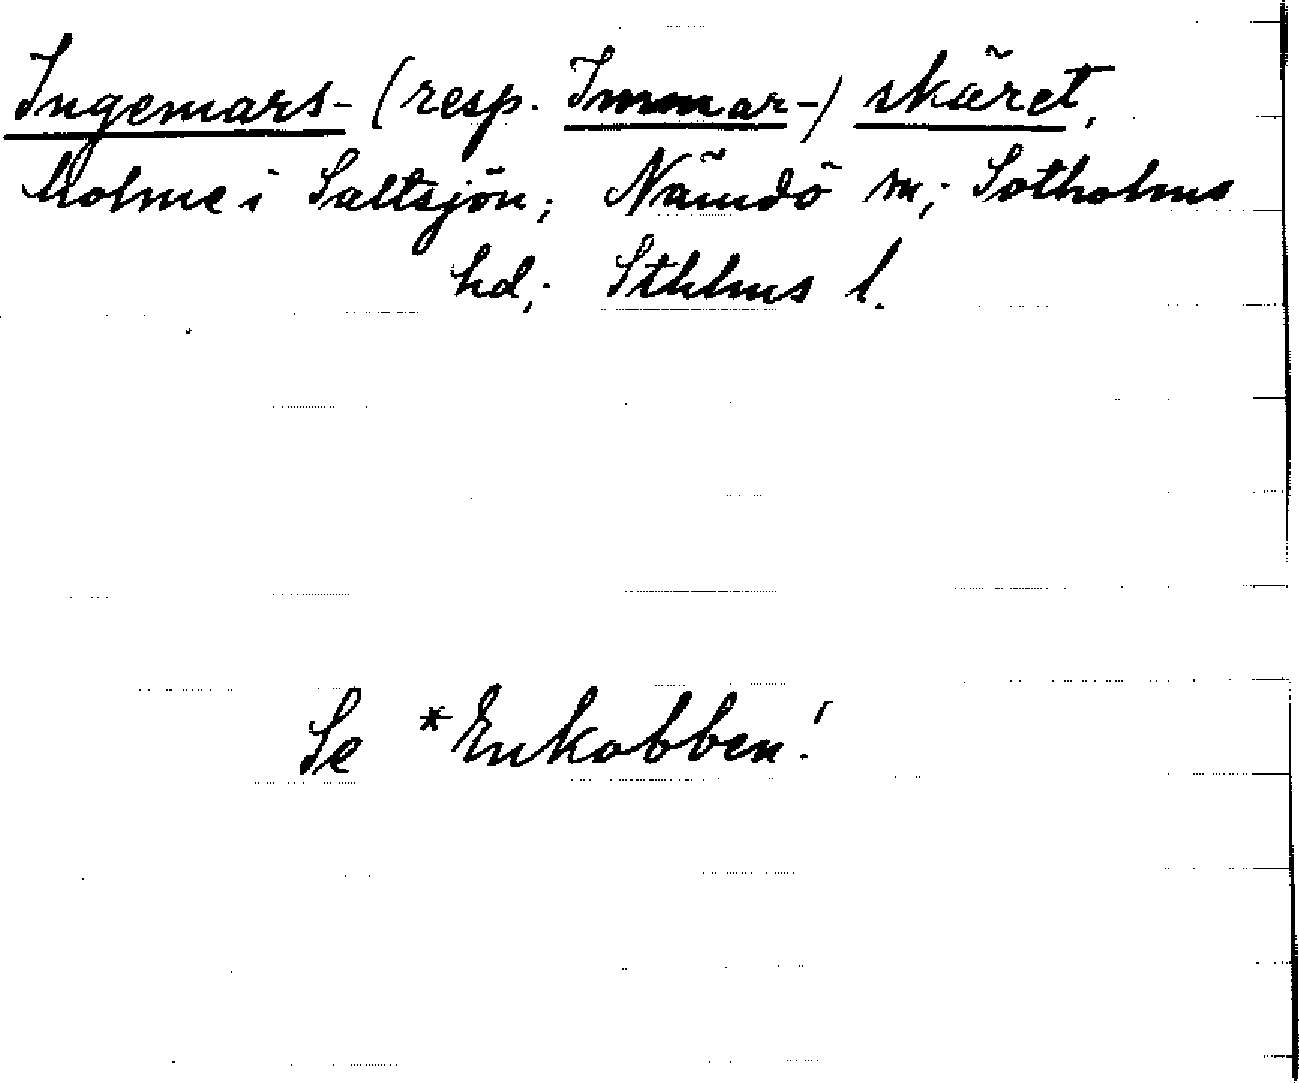 Ingemars- (resp. Immar-) skäret,
holme i Saltsjön; Nämdö sn; Sotholms
hd; Sthlms l.
Se *Enkobben!